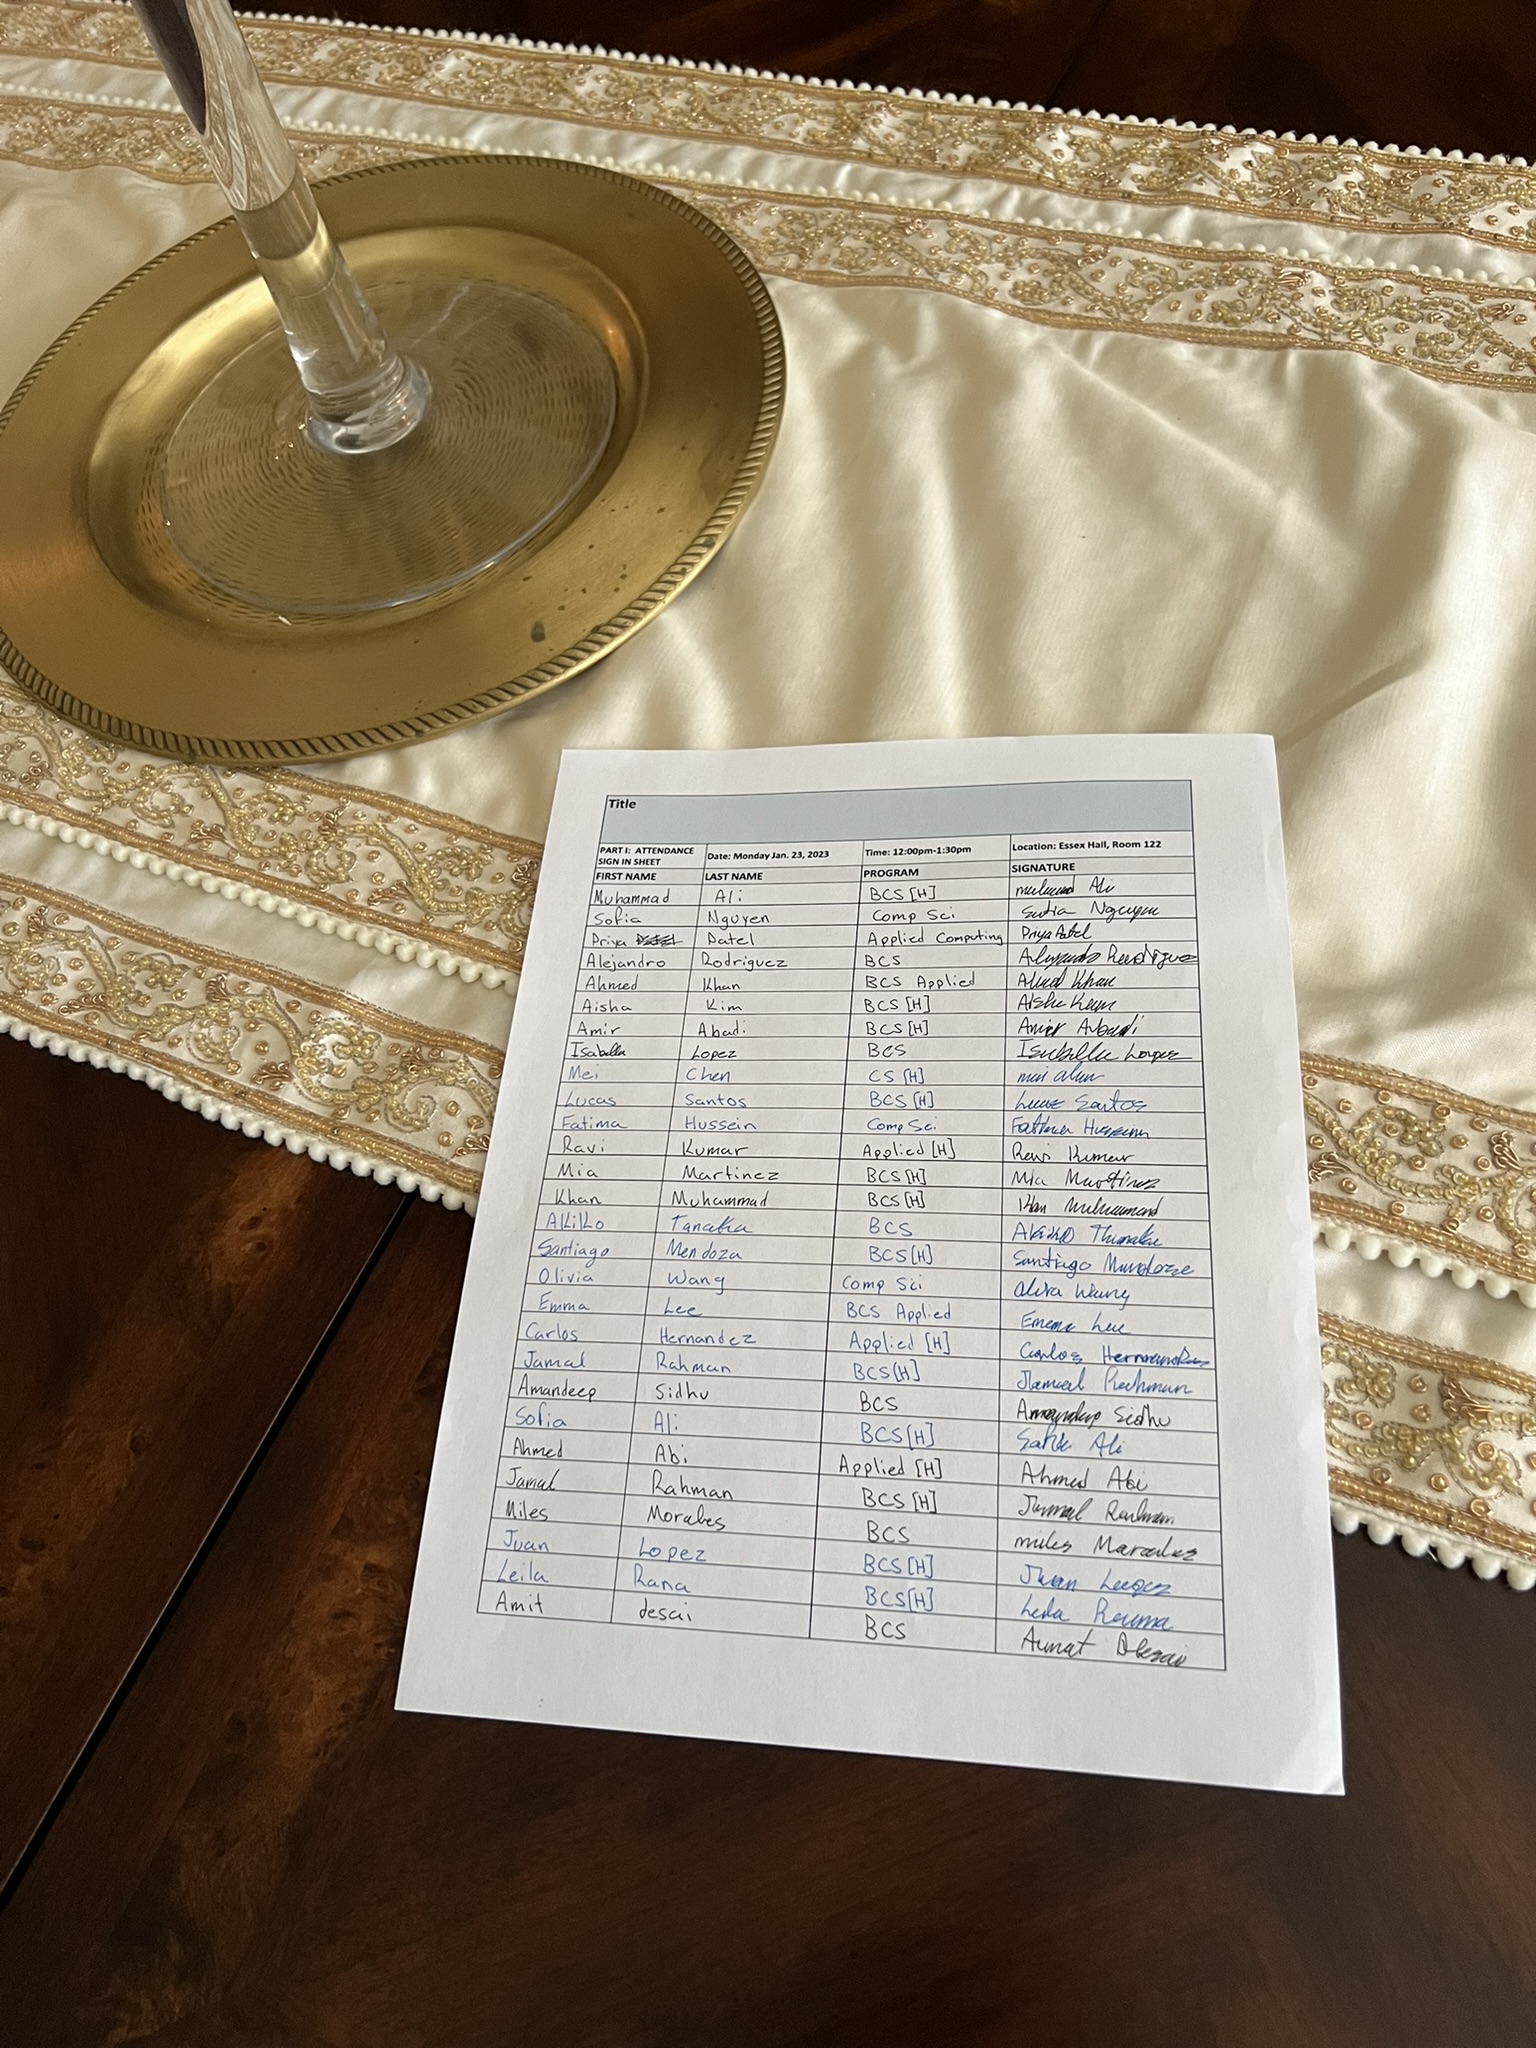 Title
PART I: ATTENDANCE SIGN IN SHEET Date: Monday Jan. 23, 2023 Time: 12:00pm-1:30pm Location: Essex Hall, Room 122
FIRST NAME LAST NAME PROGRAM SIGNATURE
Muhammad Ali BCS [H] Ali
Sofia Nguyen Comp Sci Nguyen
Priya Patel Applied Computing Priya Patel
Alejandro Rodriguez BCS
Ahmed Khan BCS Applied Khan
Aisha Kim BCS [H]
Amir Abadi BCS [H] Amir Abadi
Isabella Lopez BCS Isabella Lopez
Mei Chen CS [H]
Lucas Santos BCS [H] Santos
Fatima Hussein Comp Sci
Ravi Kumar Applied [H] Ravi Kumar
Mia Martinez BCS [H] Mia Martinez
Khan Muhammad BCS [H]
Akiko Tanaka BCS
Santiago Mendoza BCS [H] Santiago
Olivia Wang Comp Sci
Emma Lee BCS Applied Lee
Carlos Hernandez Applied [H] Carlos Hernandez
Jamal Rahman BCS [H] Jamal Rahman
Amandeep Sidhu BCS Amandeep Sidhu
Sofia Ali BCS [H] Ali
Ahmed Abi Applied [H] Ahmed Abi
Jamal Rahman BCS [H] Jamal Rahman
Miles Morales BCS miles
Juan Lopez BCS [H] Juan
Leila Rana BCS [H]
Amit desai BCS